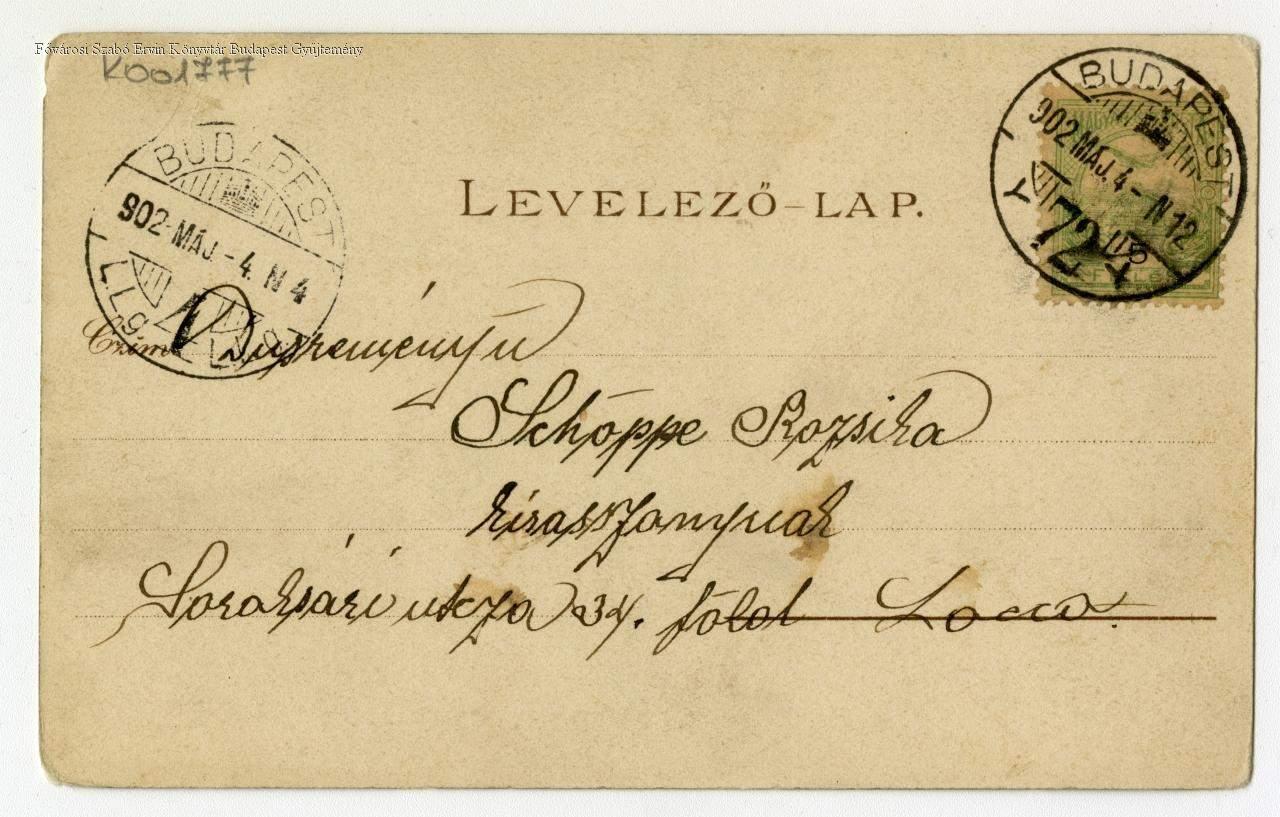 Fővárosi Szabó Ervin Könyvtár Budapest Gyűjtemény
K001777
BUDAPEST
902 MÁJ. 4 - N 12
72
BUDAPEST
902 MÁJ. - 4. N 4
LEVELEZŐ-LAP.
Czím Bujreményü
Schöppe Rozsika
kisasszonynak
Soroksári utcza 34. földt Loco.